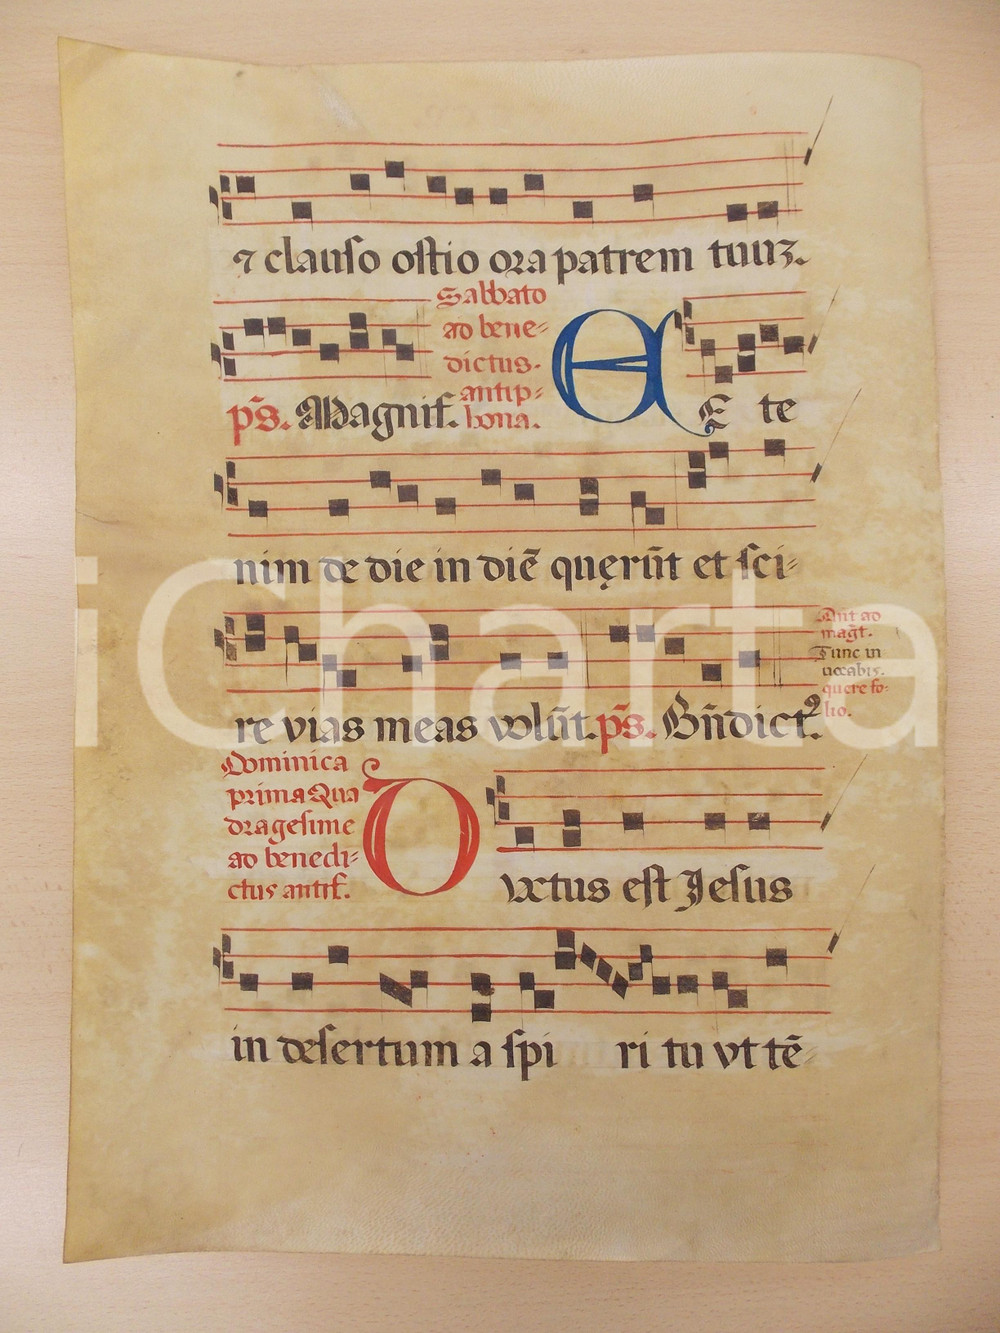 ⁊ clauso ostio ora patrem tuuʒ.
Sabbato
ad bene-
dictus.
antip-
hona.
ps. Magnif.
ME te
nim de die in diē quęrūt et sci-
re vias meas volūt. ps. Bn̄dictꝰ.
Ant ad
magt̄.
Tunc in
uocabis.
quere fo-
lio.
Dominica
prima Qua
dragesime
ad benedi-
ctus antif.
Ductus est Jesus
in desertum a spi ri tu vt tē-
iCharta